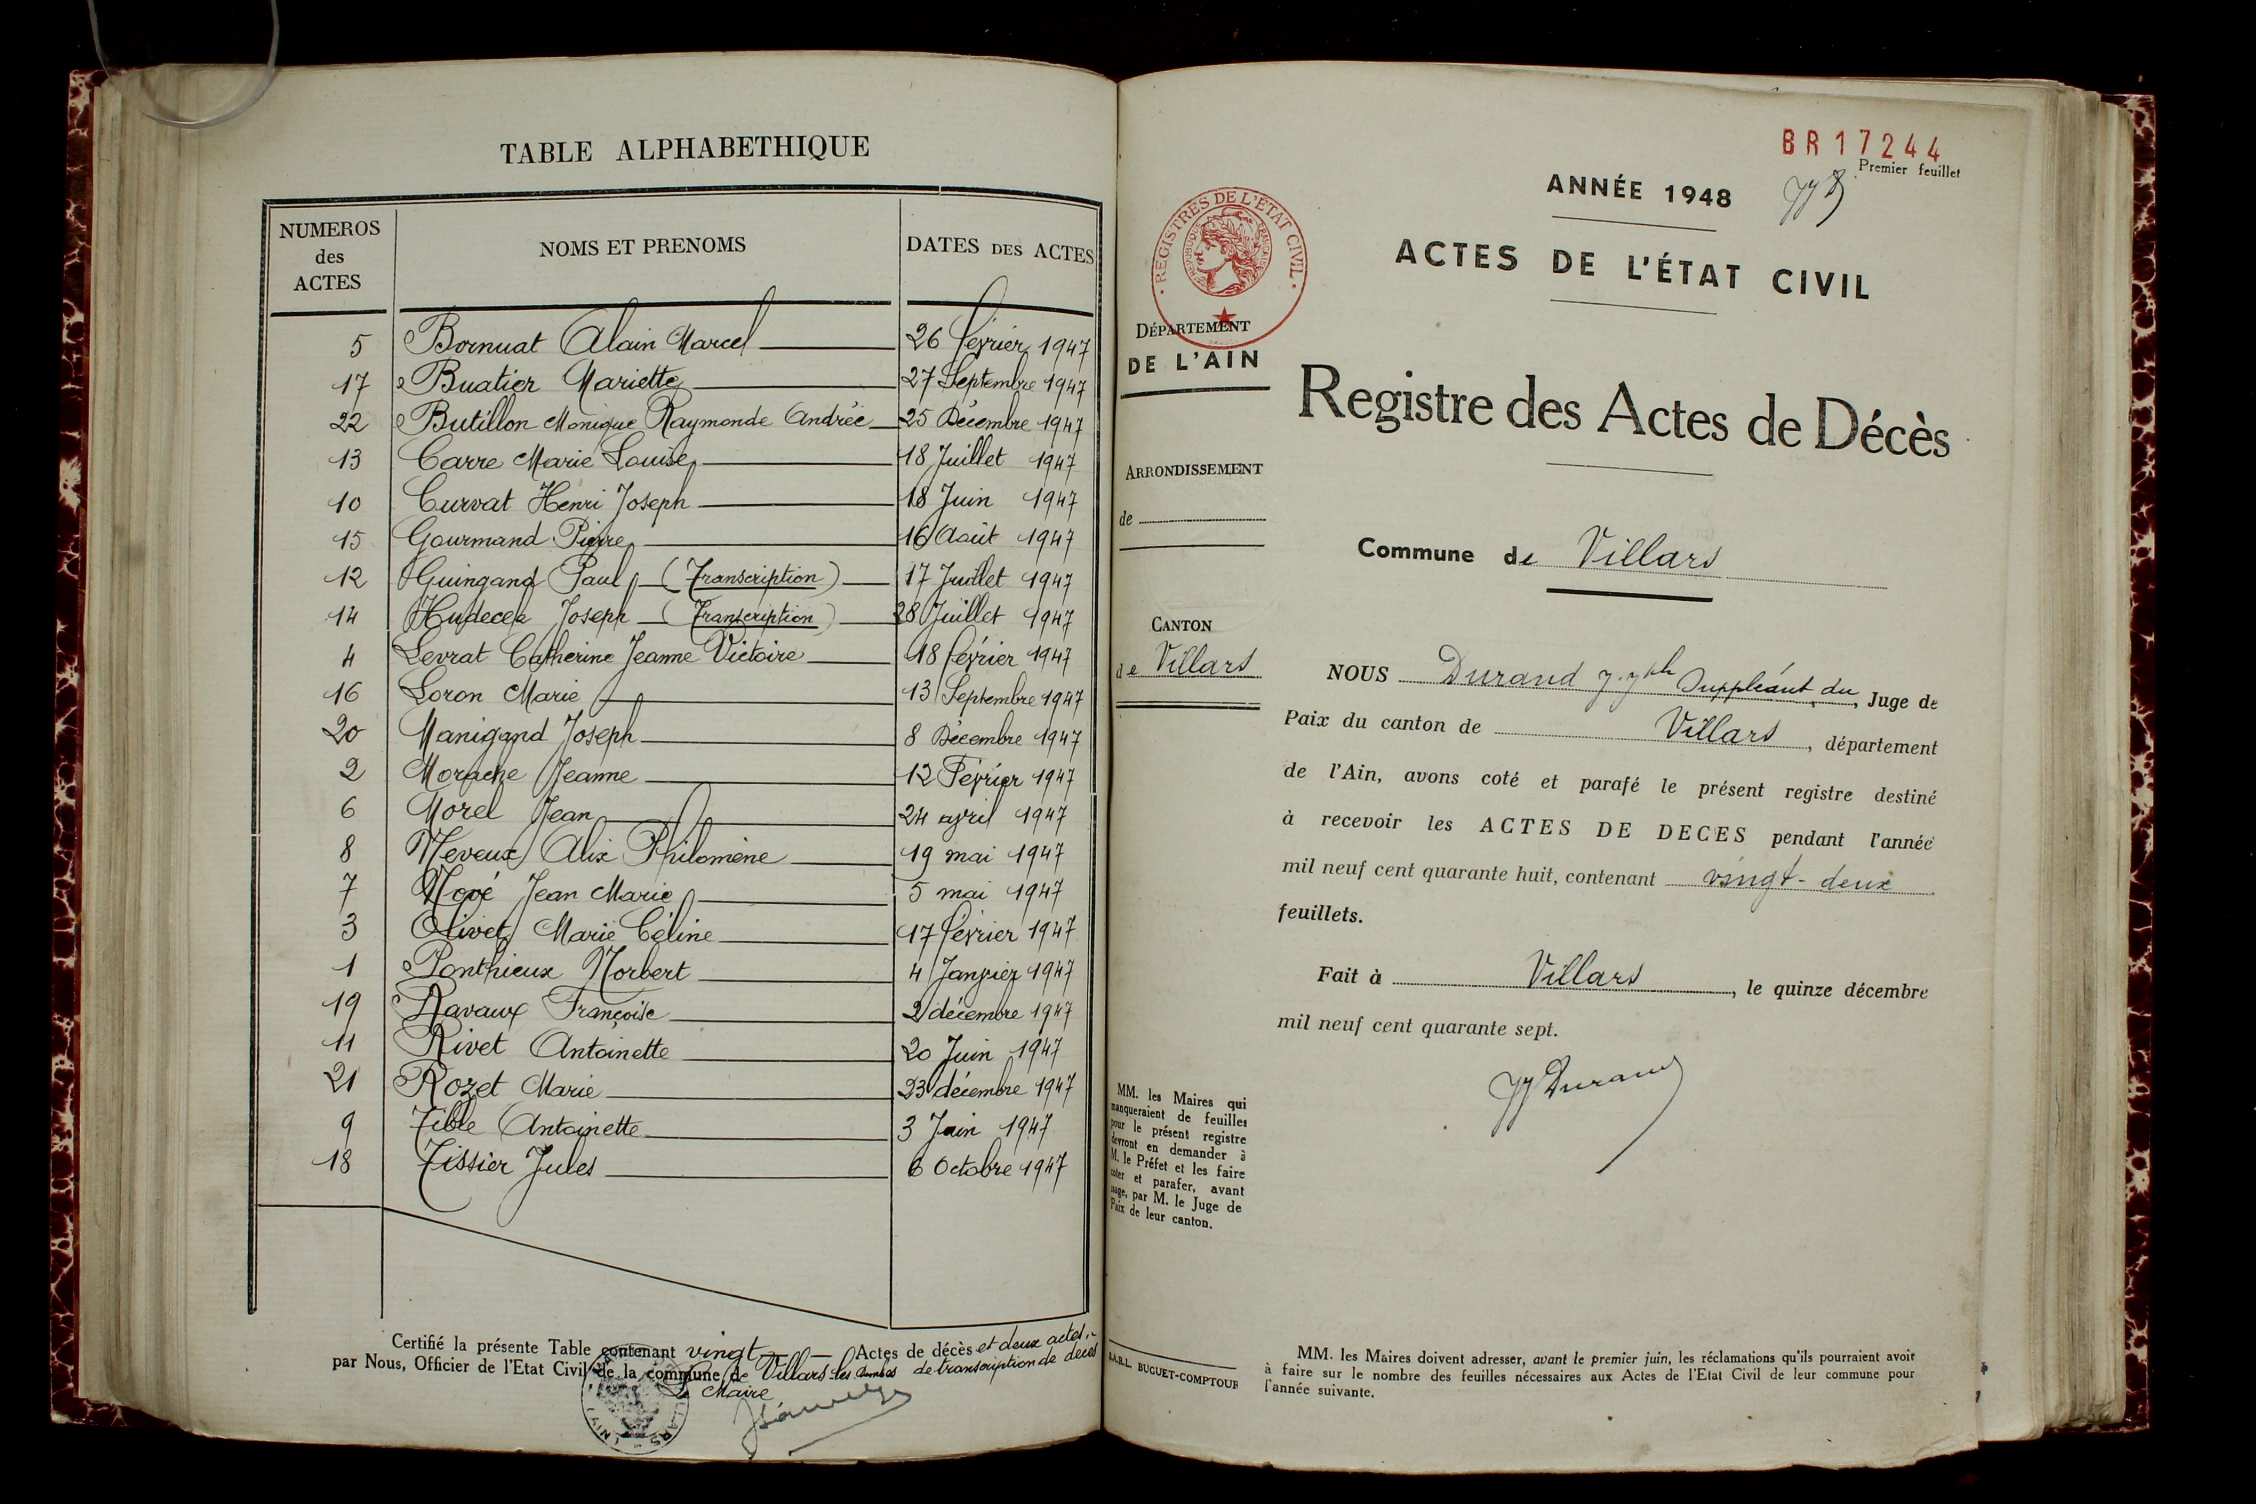 TABLE ALPHABETHIQUE
NUMEROS des ACTES NOMS ET PRENOMS DATES DES ACTES
5 Bornuat Alain Marcel 26 février 1947
17 Buatier Mariette 27 Septembre 1947
22 Butillon Monique Raymonde Andrée 25 Décembre 1947
13 Carre Marie Louise 18 Juillet 1947
10 Curvat Henri Joseph 18 Juin 1947
15 Gourmand Pierre 16 Août 1947
12 Guingand Paul (Transcription) 17 Juillet 1947
14 Hudecek Joseph (Transcription) 28 Juillet 1947
4 Levrat Catherine Jeanne Victoire 18 février 1947
16 Loron Marie 13 Septembre 1947
20 Manigand Joseph 8 Décembre 1947
2 Morache Jeanne 12 Février 1947
6 Morel Jean 24 avril 1947
8 Neveux Alix Philomène 19 mai 1947
7 Nové Jean Marie 5 mai 1947
3 Olivet Marie Céline 17 février 1947
1 Ponthieux Norbert 4 Janvier 1947
19 Ravaux Françoise 2 décembre 1947
11 Rivet Antoinette 20 Juin 1947
21 Rozet Marie 23 décembre 1947
9 Tible Antoinette 3 Juin 1947
18 Tissier Jules 6 Octobre 1947
Certifié la présente Table contenant vingt Actes de décès et deux actes
par Nous, Officier de l'Etat Civil de la commune de Villars les Dombes de transcription de décès
Le Maire
BR17244
Premier feuillet
ANNÉE 1948
ACTES DE L'ÉTAT CIVIL
REGISTRES DE L'ÉTAT CIVIL
DÉPARTEMENT
DE L'AIN
Registre des Actes de Décès
ARRONDISSEMENT
de
Commune de Villars
CANTON
de Villars
NOUS Durand J. Jph Suppléant du, Juge de
Paix du canton de Villars, département
de l'Ain, avons coté et parafé le présent registre destiné
à recevoir les ACTES DE DECES pendant l'année
mil neuf cent quarante huit, contenant vingt-deux
feuillets.
Fait à Villars, le quinze décembre
mil neuf cent quarante sept.
JJ Durand
MM. les Maires qui
manqueraient de feuilles
pour le présent registre
devront en demander à
M. le Préfet et les faire
coter et parafer, avant
usage, par M. le Juge de
Paix de leur canton.
S.A.R.L. BUGUET-COMPTOUR
MM. les Maires doivent adresser, avant le premier juin, les réclamations qu'ils pourraient avoir
à faire sur le nombre des feuilles nécessaires aux Actes de l'Etat Civil de leur commune pour
l'année suivante.